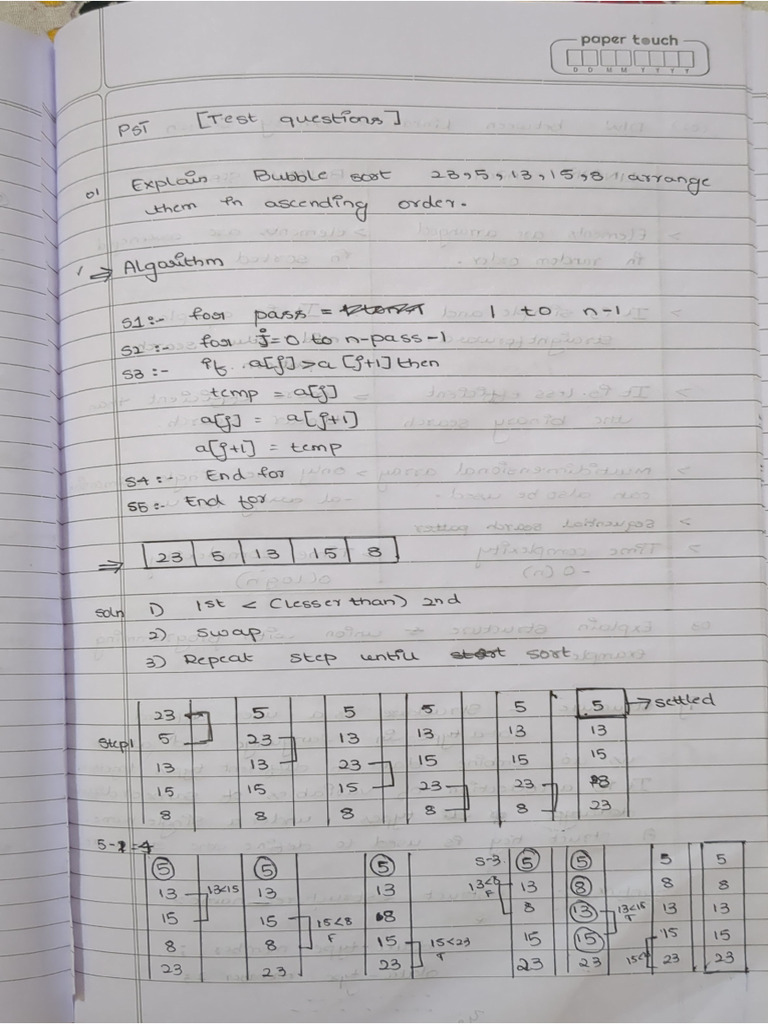 paper touch
D D M M Y Y Y Y
PST [Test questions]
01 Explain Bubble sort 23, 5, 13, 15, 8 arrange
them in ascending order.
1 ⇒ Algorithm
S1:- for pass = 1 to n-1
S2:- for j=0 to n-pass-1
S3:- if a[j]>a[j+1] then
temp = a[j]
a[j] = a[j+1]
a[j+1] = temp
S4:- End for
S5:- End for
⇒ 23 5 13 15 8
Soln 1) 1st < (lesser than) 2nd
2) swap
3) Repeat step untill sort
23 5 5 5 5 5 → settled
Step1 5 23 13 13 13 13
13 13 23 15 15 15
15 15 15 23 23 8
8 8 8 8 8 23
5-1=4
5 5 5 S-3 5 5 5 5
13 13<15 13 13 13<8 F 13 8 8 8
15 15 15<8 F 8 8 13 13<15 T 13 13
8 8 15 15<23 T 15 15 15 15
23 23 23 23 23 15< 23 23